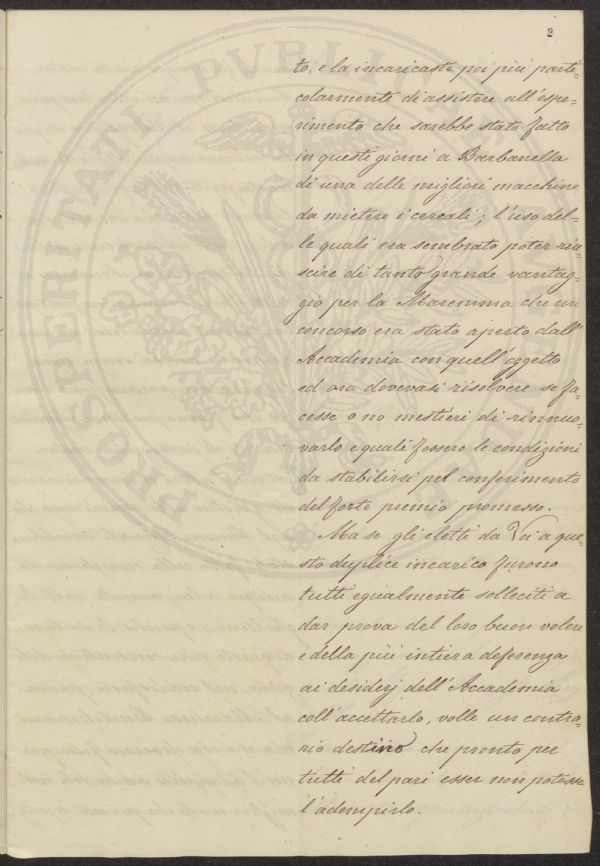 2
to, e la incaricaste poi più parti-
colarmente di assistere all'espe-
rimento che sarebbe stato fatto
in questi giorni a Barbanella
di una delle migliori macchine
da mietere i cereali; l'uso del-
le quali era sembrato poter riu-
scire di tanto grande vantag-
gio per la Maremma che un
concorso era stato aperto dall'
Accademia con quell'oggetto
ed ora dovevasi risolvere se fa-
cesse o no mestieri di rinnuo-
varlo e quali fossero le condizioni
da stabilirsi pel conferimento
del forte premio promesso.
Ma se gli eletti da Voi a que-
sto duplice incarico furono
tutti egualmente solleciti a
dar prova del loro buon volere
e della più intiera deferenza
ai desiderj dell'Accademia
coll'accettarlo, volle un contra-
rio destino che pronto per
tutti del pari esser non potesse
l'adempirlo.
PROSPERITATI PVBLI